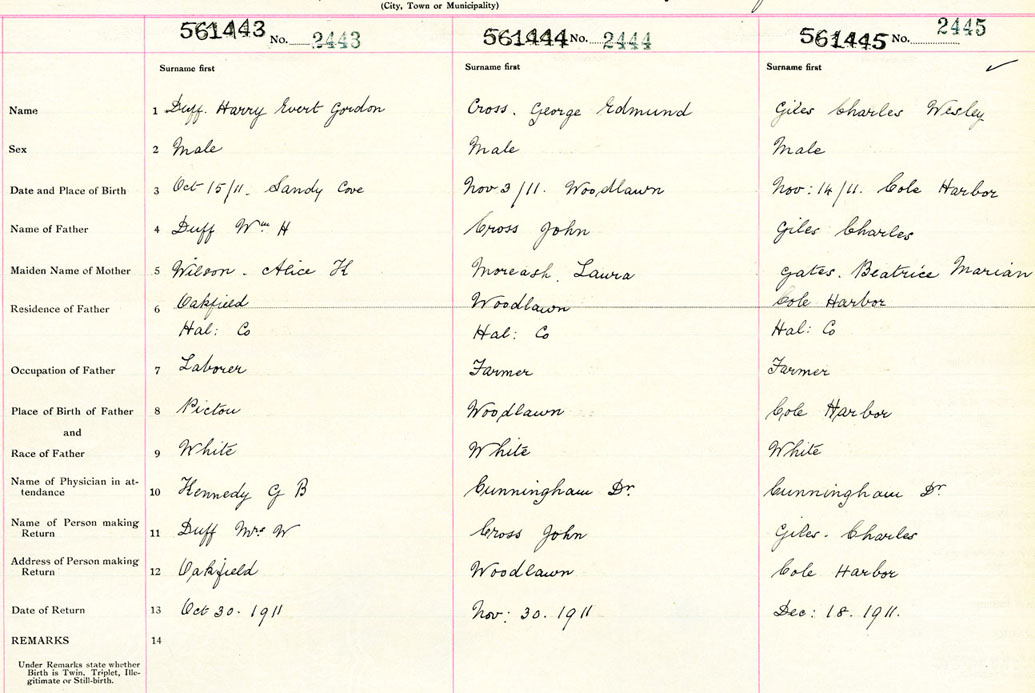 (City, Town or Municipality)
561443 No. 2443 561444 No. 2444 561445 No. 2445
Surname first Surname first Surname first
Name 1 Duff. Harry Evert Gordon Cross. George Edmund Giles Charles Wesley
Sex 2 Male Male Male
Date and Place of Birth 3 Oct 15/11. Sandy Cove Nov 3/11. Woodlawn Nov: 14/11. Cole Harbor
Name of Father 4 Duff Wm H Cross John Giles Charles
Maiden Name of Mother 5 Wilson. Alice H Moreash. Laura Gates. Beatrice Marian
Residence of Father 6 Oakfield Woodlawn Cole Harbor
Hal: Co Hal: Co Hal: Co
Occupation of Father 7 Laborer Farmer Farmer
Place of Birth of Father 8 Pictou Woodlawn Cole Harbor
and
Race of Father 9 White White White
Name of Physician in at-
tendance 10 Kennedy G B Cunningham Dr. Cunningham Dr.
Name of Person making
Return 11 Duff Mrs W Cross John Giles. Charles
Address of Person making
Return 12 Oakfield Woodlawn Cole Harbor
Date of Return 13 Oct 30. 1911 Nov: 30. 1911 Dec: 18. 1911.
REMARKS 14
Under Remarks state whether
Birth is Twin, Triplet, Ille-
gitimate or Still-birth.